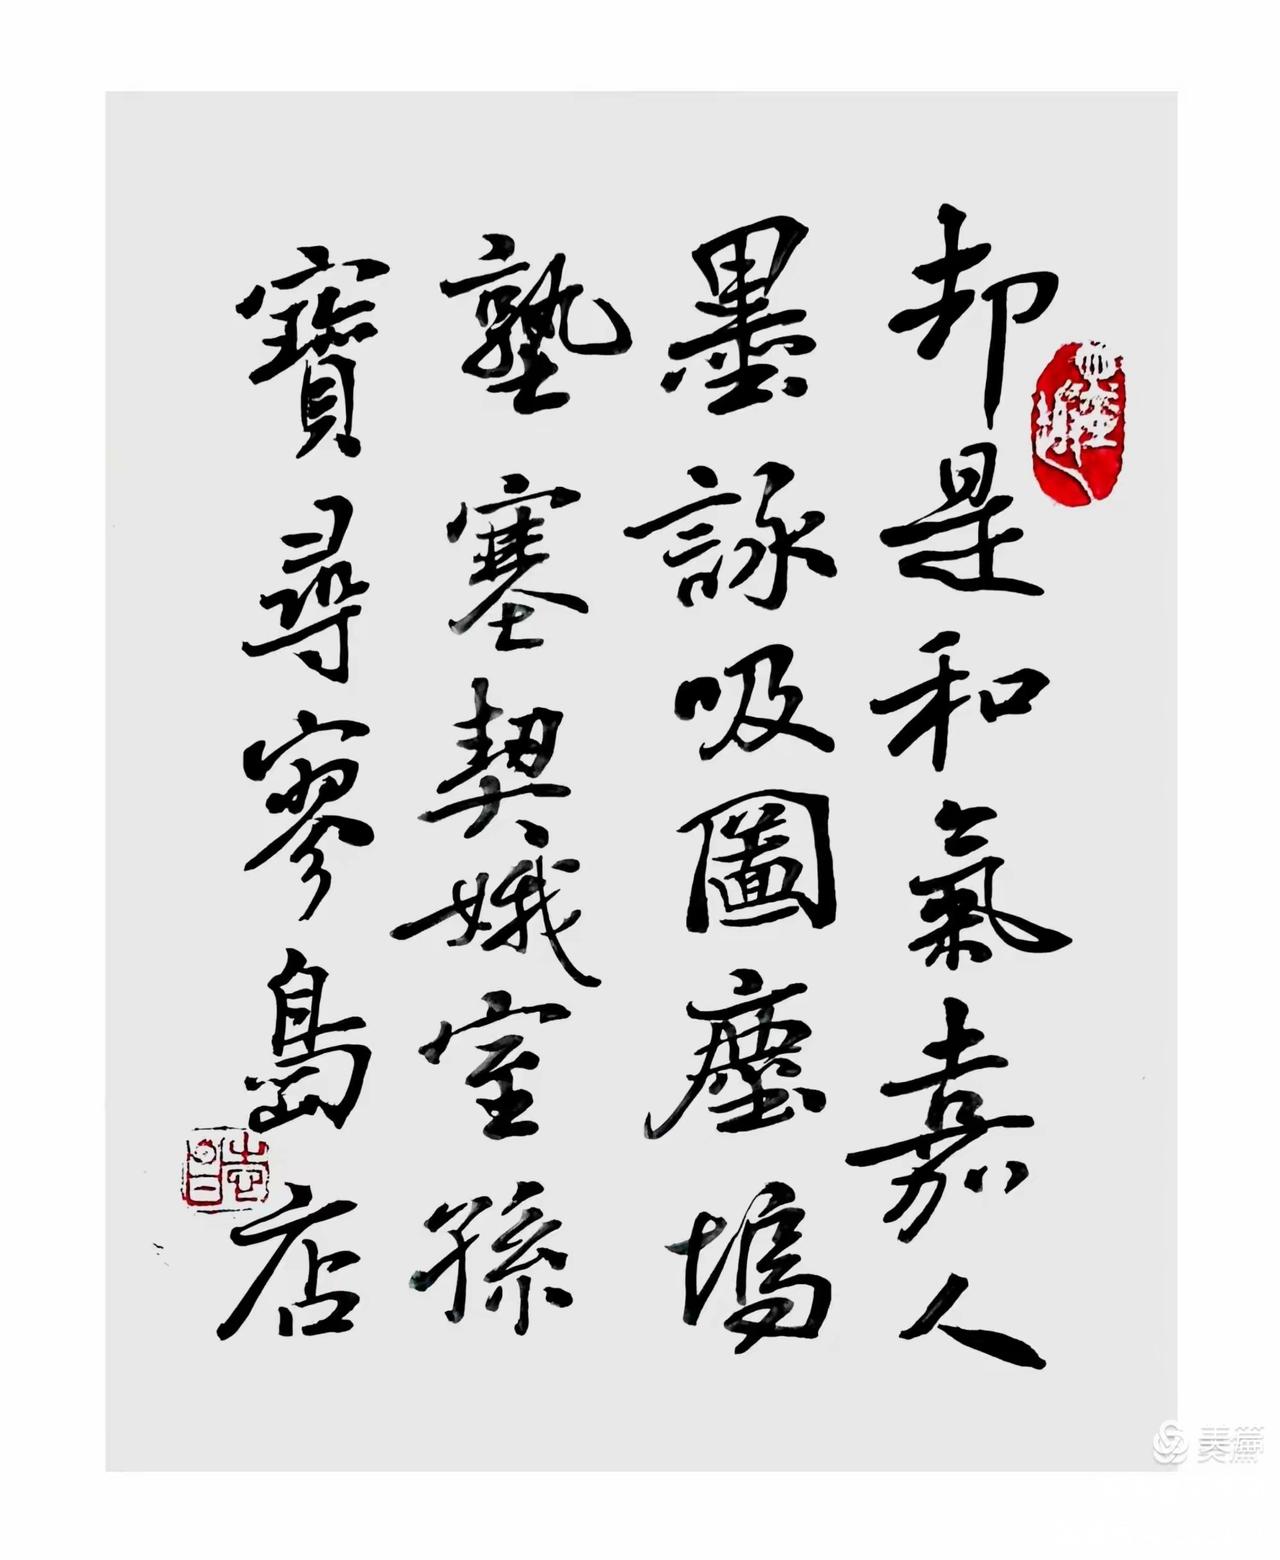 却是和氣嘉人
墨詠吸圖塵塢
塾塞契娥室孫
寶尋寥島店
美篇